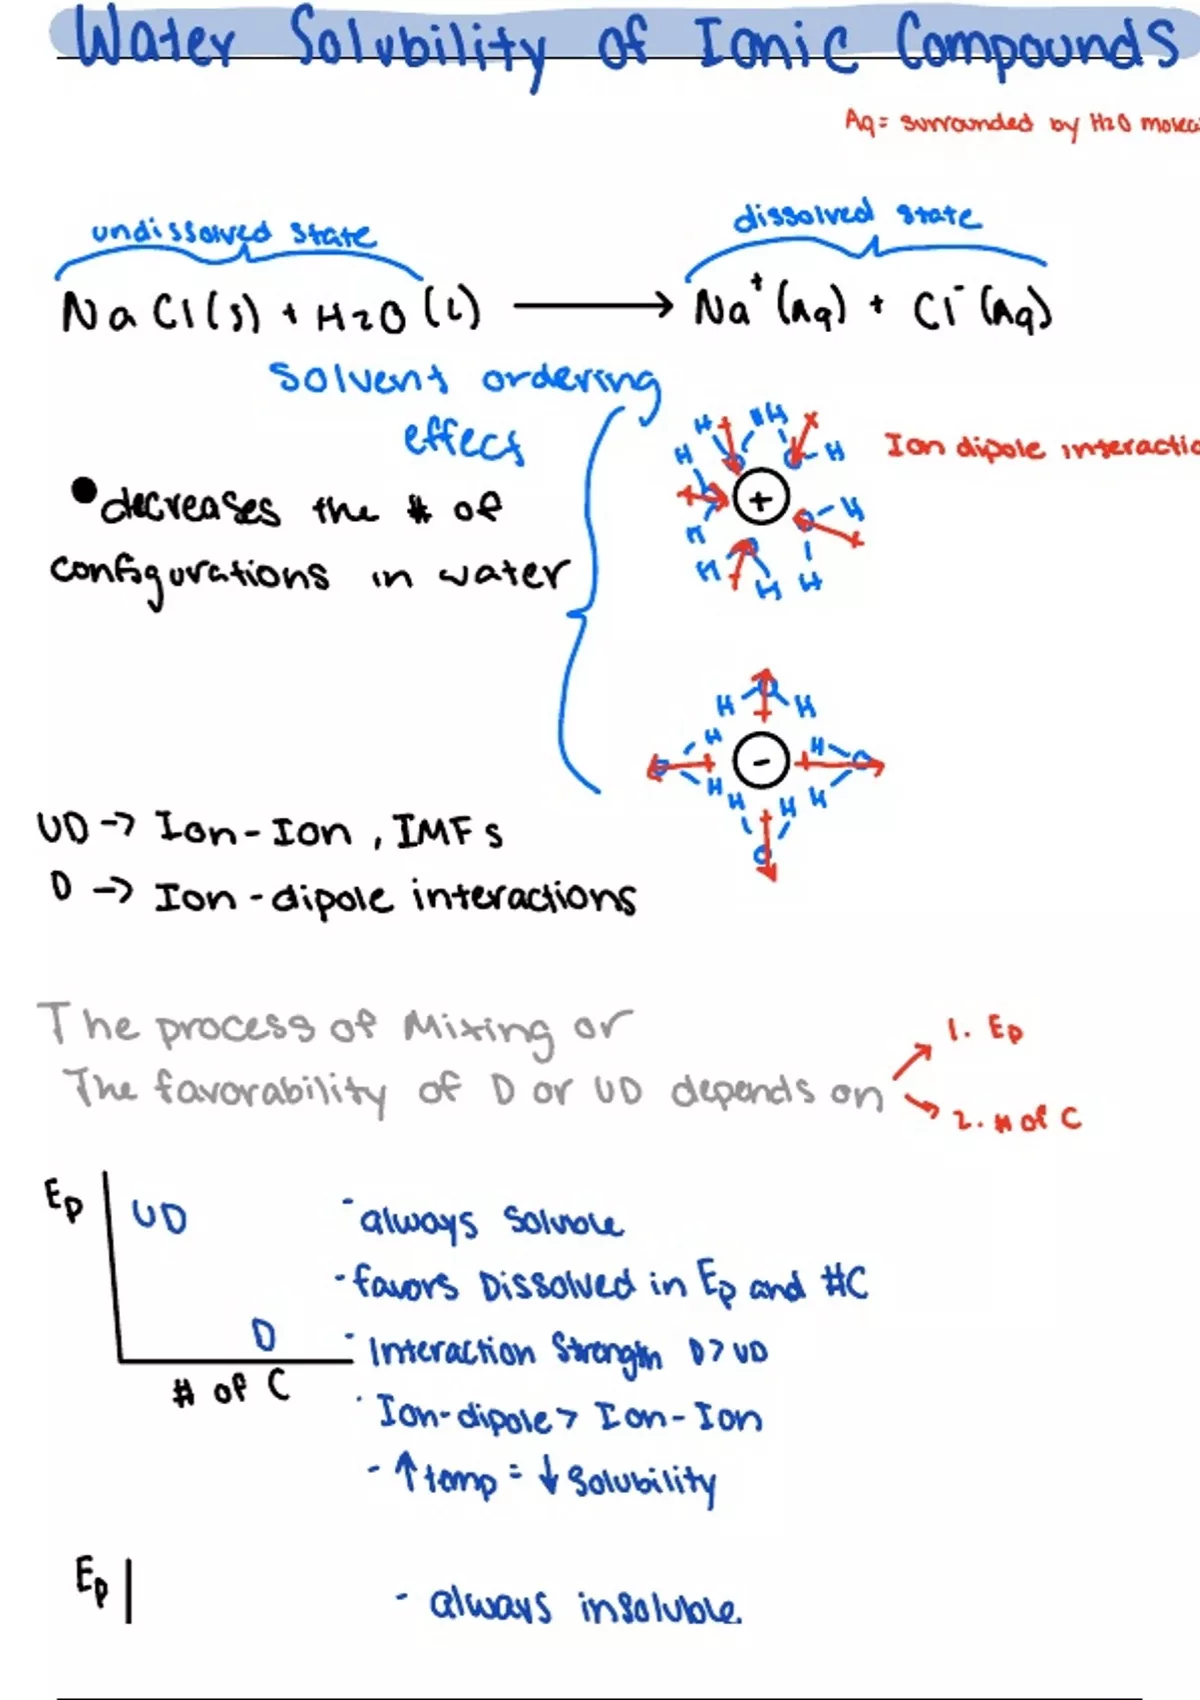 Water Solubility of Ionic Compounds
Aq = surrounded by H2O
undissolved state
dissolved state
NaCl(s) + H2O(l) → Na⁺(Aq) + Cl⁻(Aq)
Solvent ordering
effect
• decreases the # of
configurations in water
Ion dipole
H H H H
H + H
H H H H
H H
H - H
H H H H
UD → Ion-Ion, IMFs
D → Ion-dipole interactions
The process of Mixing or
The favorability of D or UD depends on
1. Ep
2. # of C
Ep
UD
D
# of C
- always soluble
- favors Dissolved in Ep and #C
- Interaction Strength D > UD
- Ion-dipole > Ion-Ion
- ↑ temp = ↓ Solubility
Ep
- always insoluble.